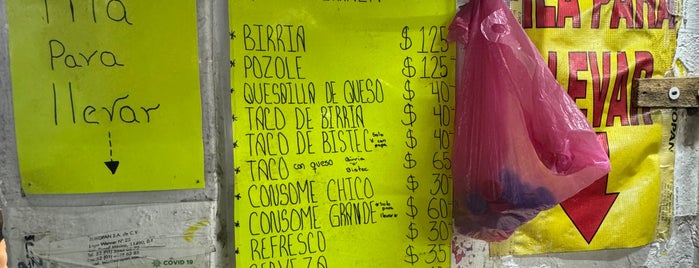 Fila
Para
llevar
EUROPAN S.A. de C.V.
COVID 19
* BIRRIA $ 125
* POZOLE $ 125
* QUESADILLA DE QUESO $ 40
* TACO DE BIRRIA $ 40
* TACO DE BISTEC solo con papa $ 40
* TACO con queso Birria Bistec $ 65
* CONSOME CHICO $ 30
* CONSOME GRANDE *solo para llevar $ 60
* REFRESCO $ 35
CERVEZA
FILA PARA
LLEVAR